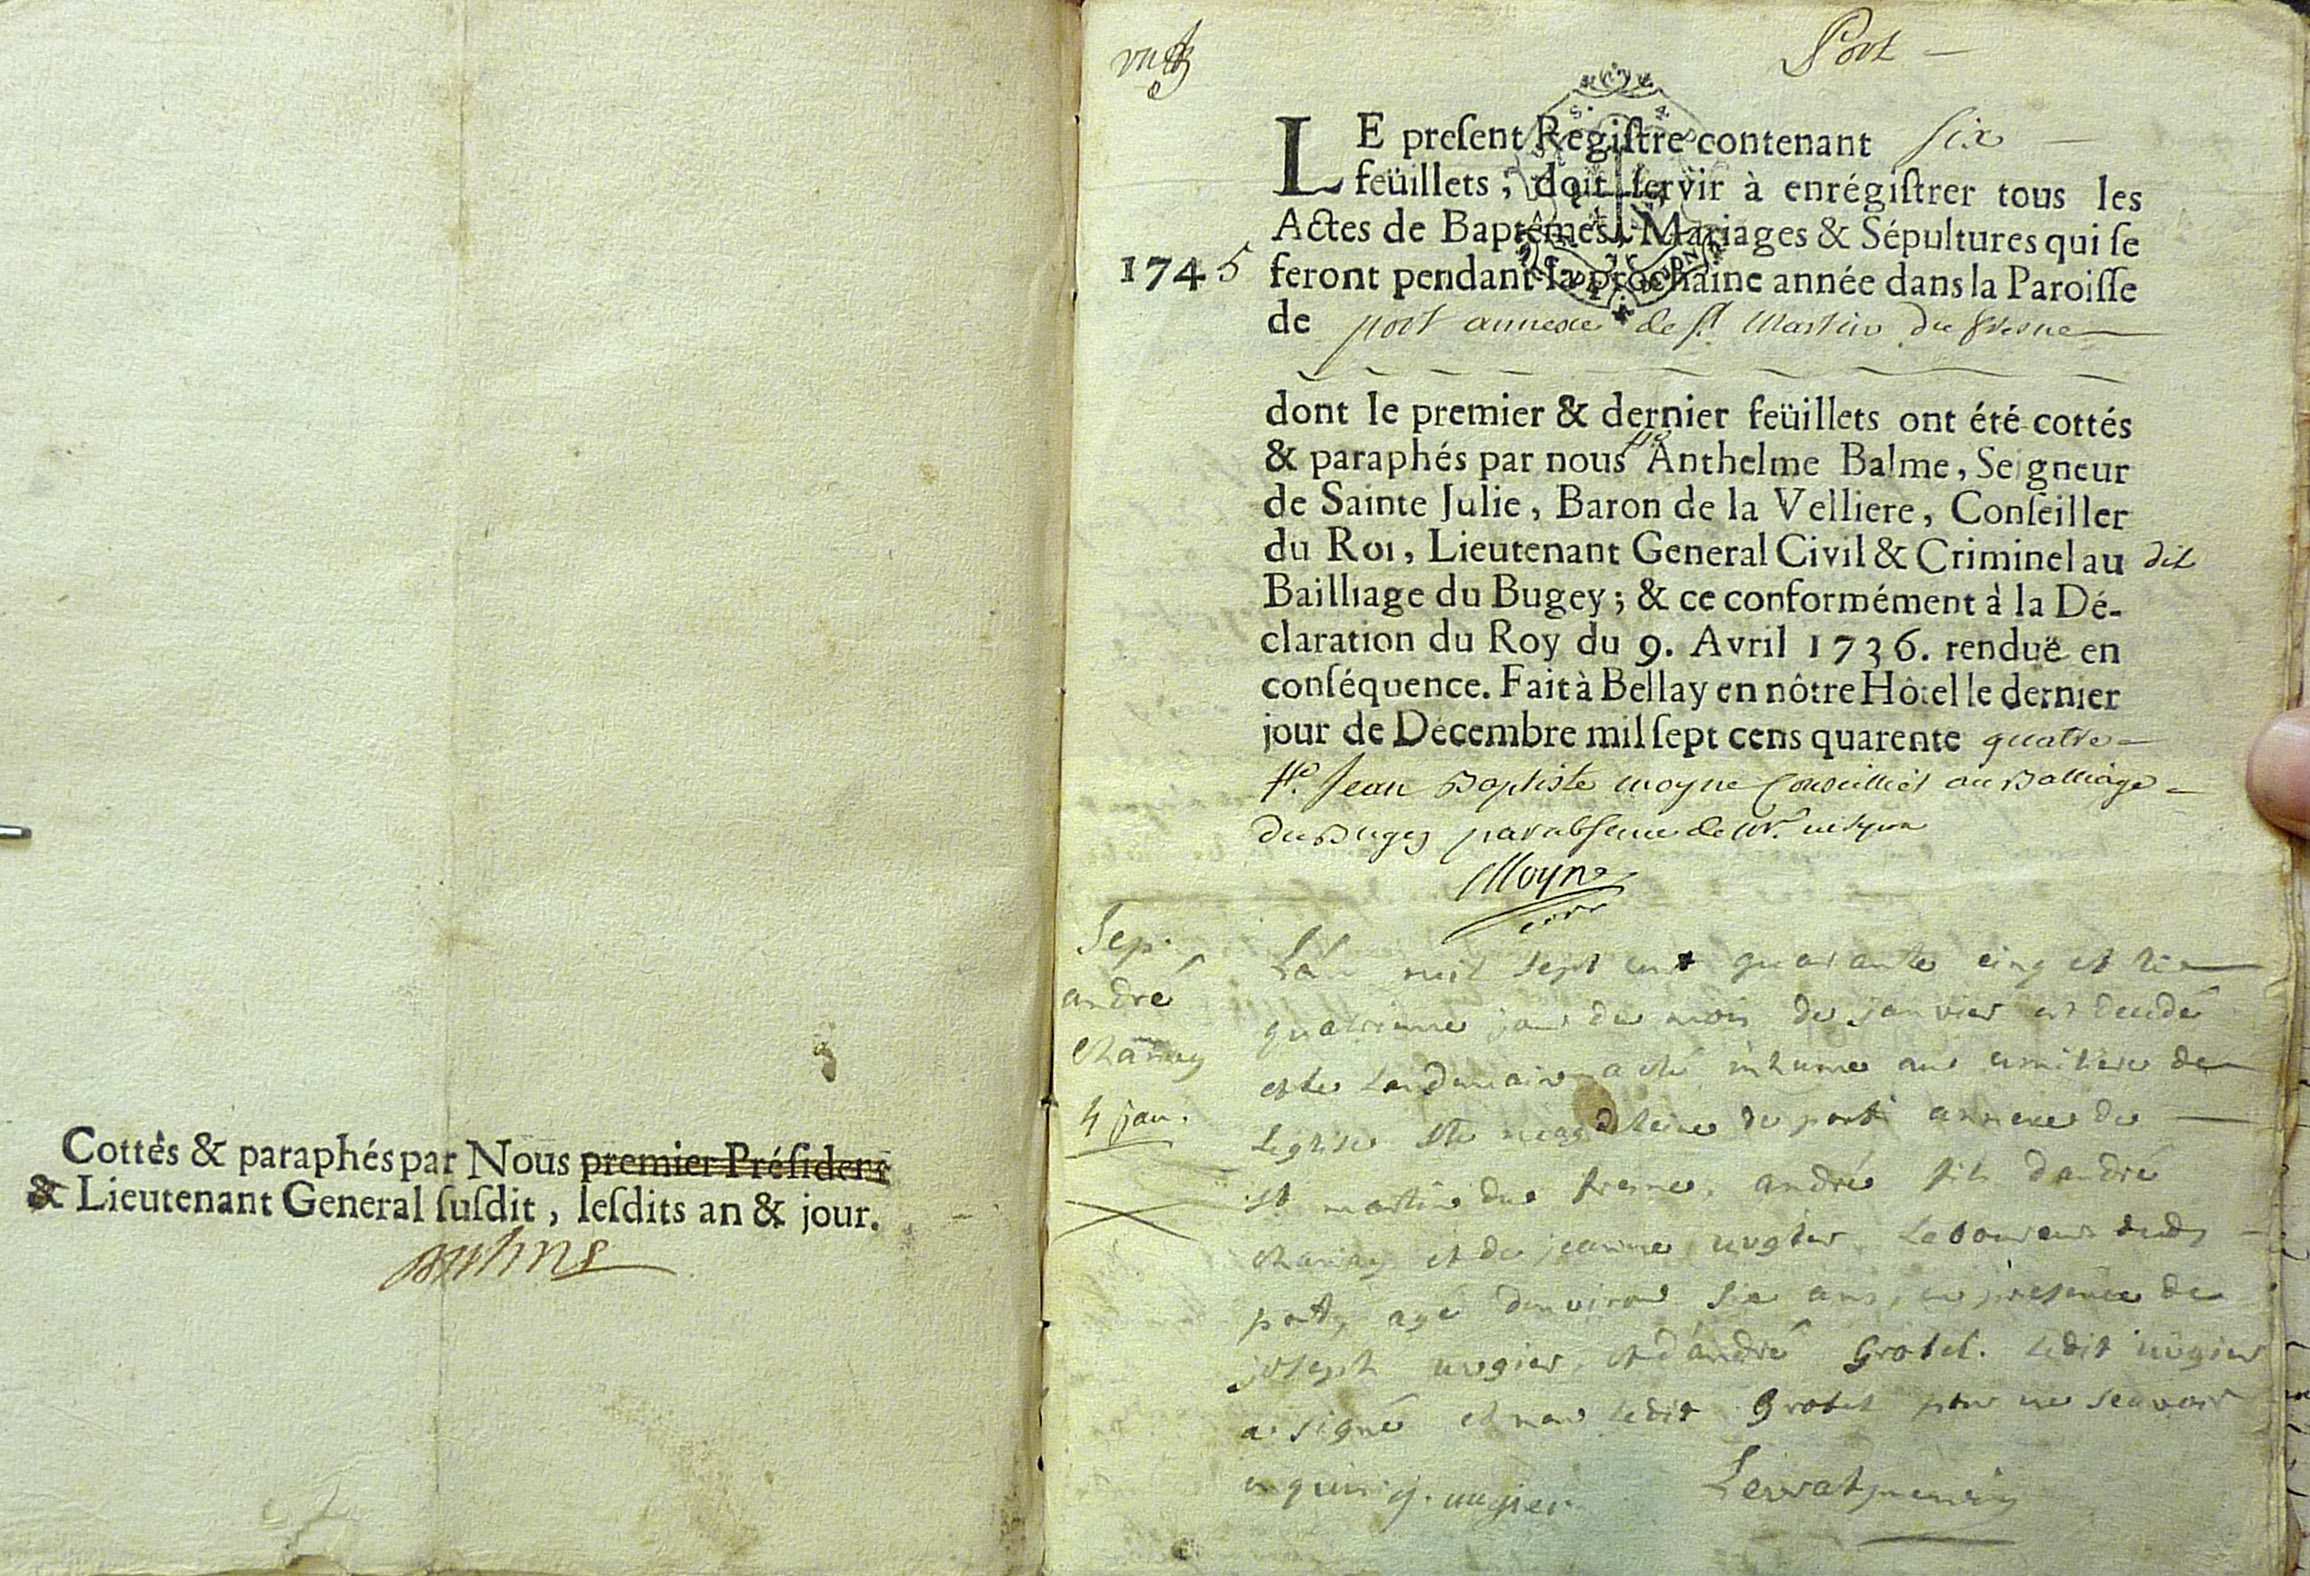 Cottés & paraphés par Nous premier Présidenr
& Lieutenant General suſdit, leſdits an & jour.
Port
LE preſent Regiſtre contenant six
feüillets, doit ſervir à enrégiſtrer tous les
Actes de Baptêmes, Mariages & Sépultures qui ſe
1745 feront pendant la prochaine année dans la Paroiſſe
de port annexe de st Martin du fresne
dont le premier & dernier feüillets ont été cottés
& paraphés par nous Anthelme Balme, Seigneur
de Sainte Julie, Baron de la Velliere, Conſeiller
du Roi, Lieutenant General Civil & Criminel au dit
Bailliage du Bugey; & ce conformément à la Dé-
claration du Roy du 9. Avril 1736. renduë en
conſéquence. Fait à Bellay en nôtre Hôtel le dernier
jour de Décembre mil ſept cens quarente quatre
Jean Baptiste moyne Conseillier au Balliage
du Bugey par absence de mr.
Moyne
Sep.
andré
charvey
4 jan.
Lan mil sept cent quarante cinq et le
quatrieme jour du mois de janvier est decedé
et le landemain a esté inhumé au cimitiere de
Leglise ste magdeleine de port annexe de
st martin du fresne, andré fils dandré
et de jeanne Laboureur dud
port, agé denviron six ans, en presence de
joseph et dandré Grobel. ledit
a signé et non ledit Grobel pour ne scavoir
enquis